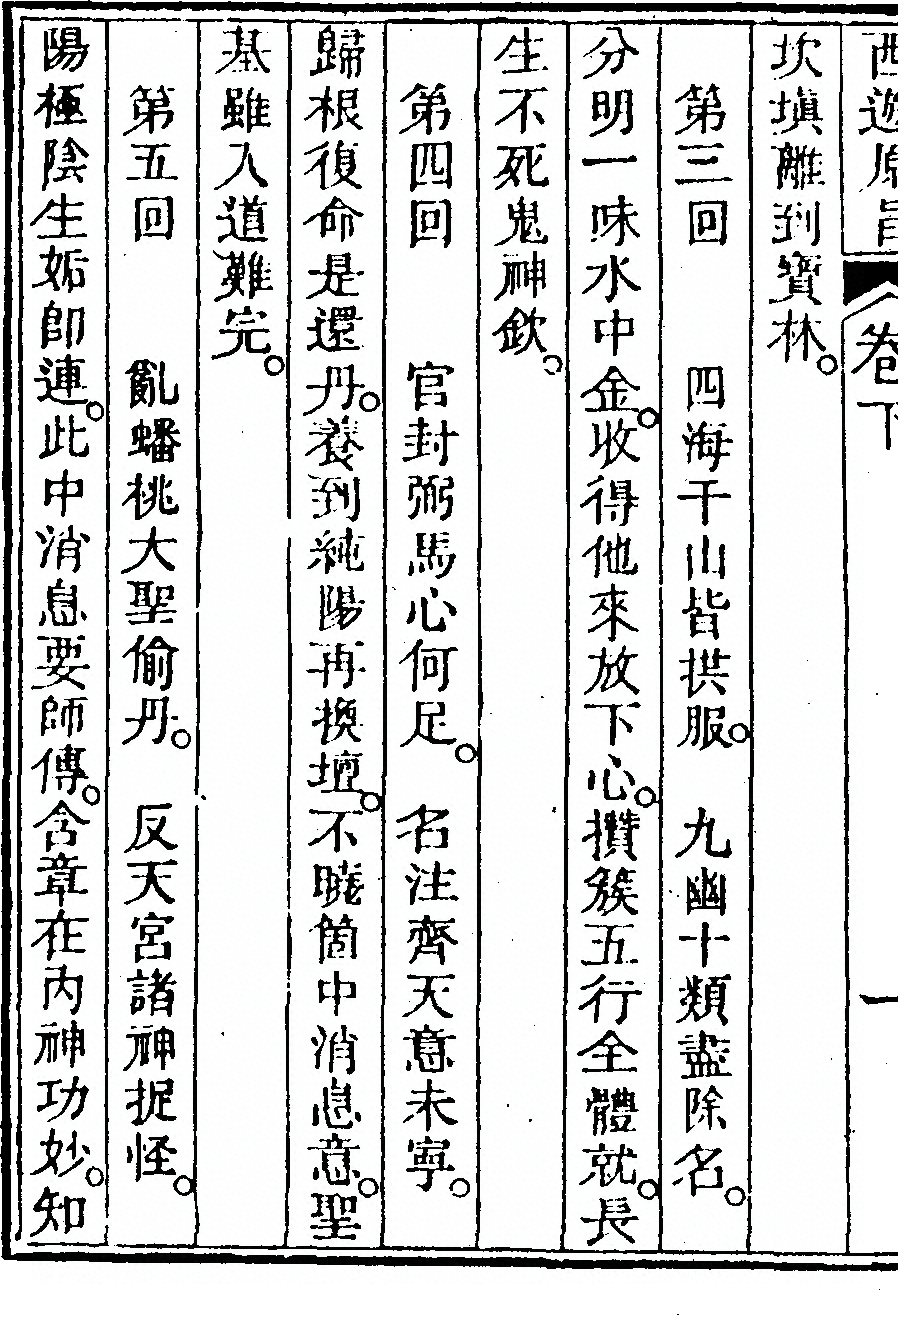 西遊原旨 卷下 一
坎塡離到寶林。
第三回 四海千山皆拱服。 九幽十類盡除名。
分明一味水中金。收得他來放下心。攢簇五行全體就。長
生不死鬼神欽。
第四回 官封弼馬心何足。 名注齊天意未寧。
歸根復命是還丹。養到純陽再換壇。不曉箇中消息意。聖
基雖入道難完。
第五回 亂蟠桃大聖偷丹。 反天宮諸神捉怪。
陽極陰生姤卽連。此中消息要師傳。含章在內神功妙。知